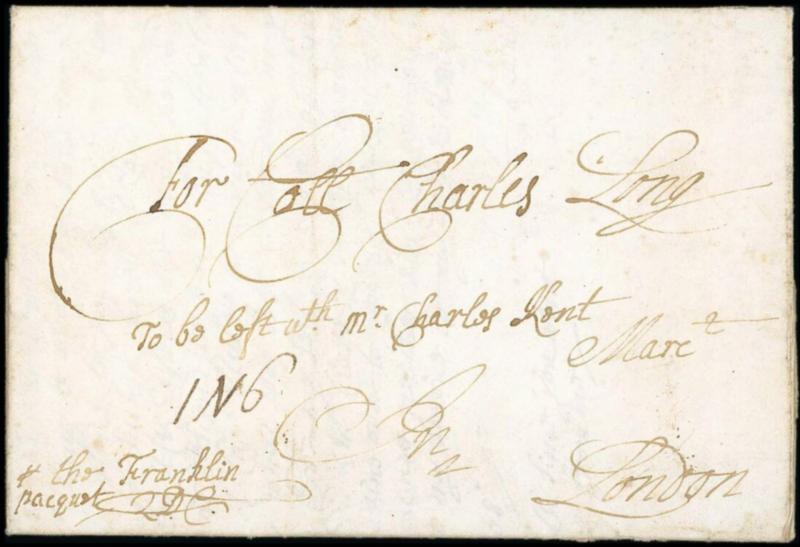 For Coll Charles Long
To be left wth. mr. Charles Kent
Marct
1N6
In
London
the Franklin
pacquet QDC